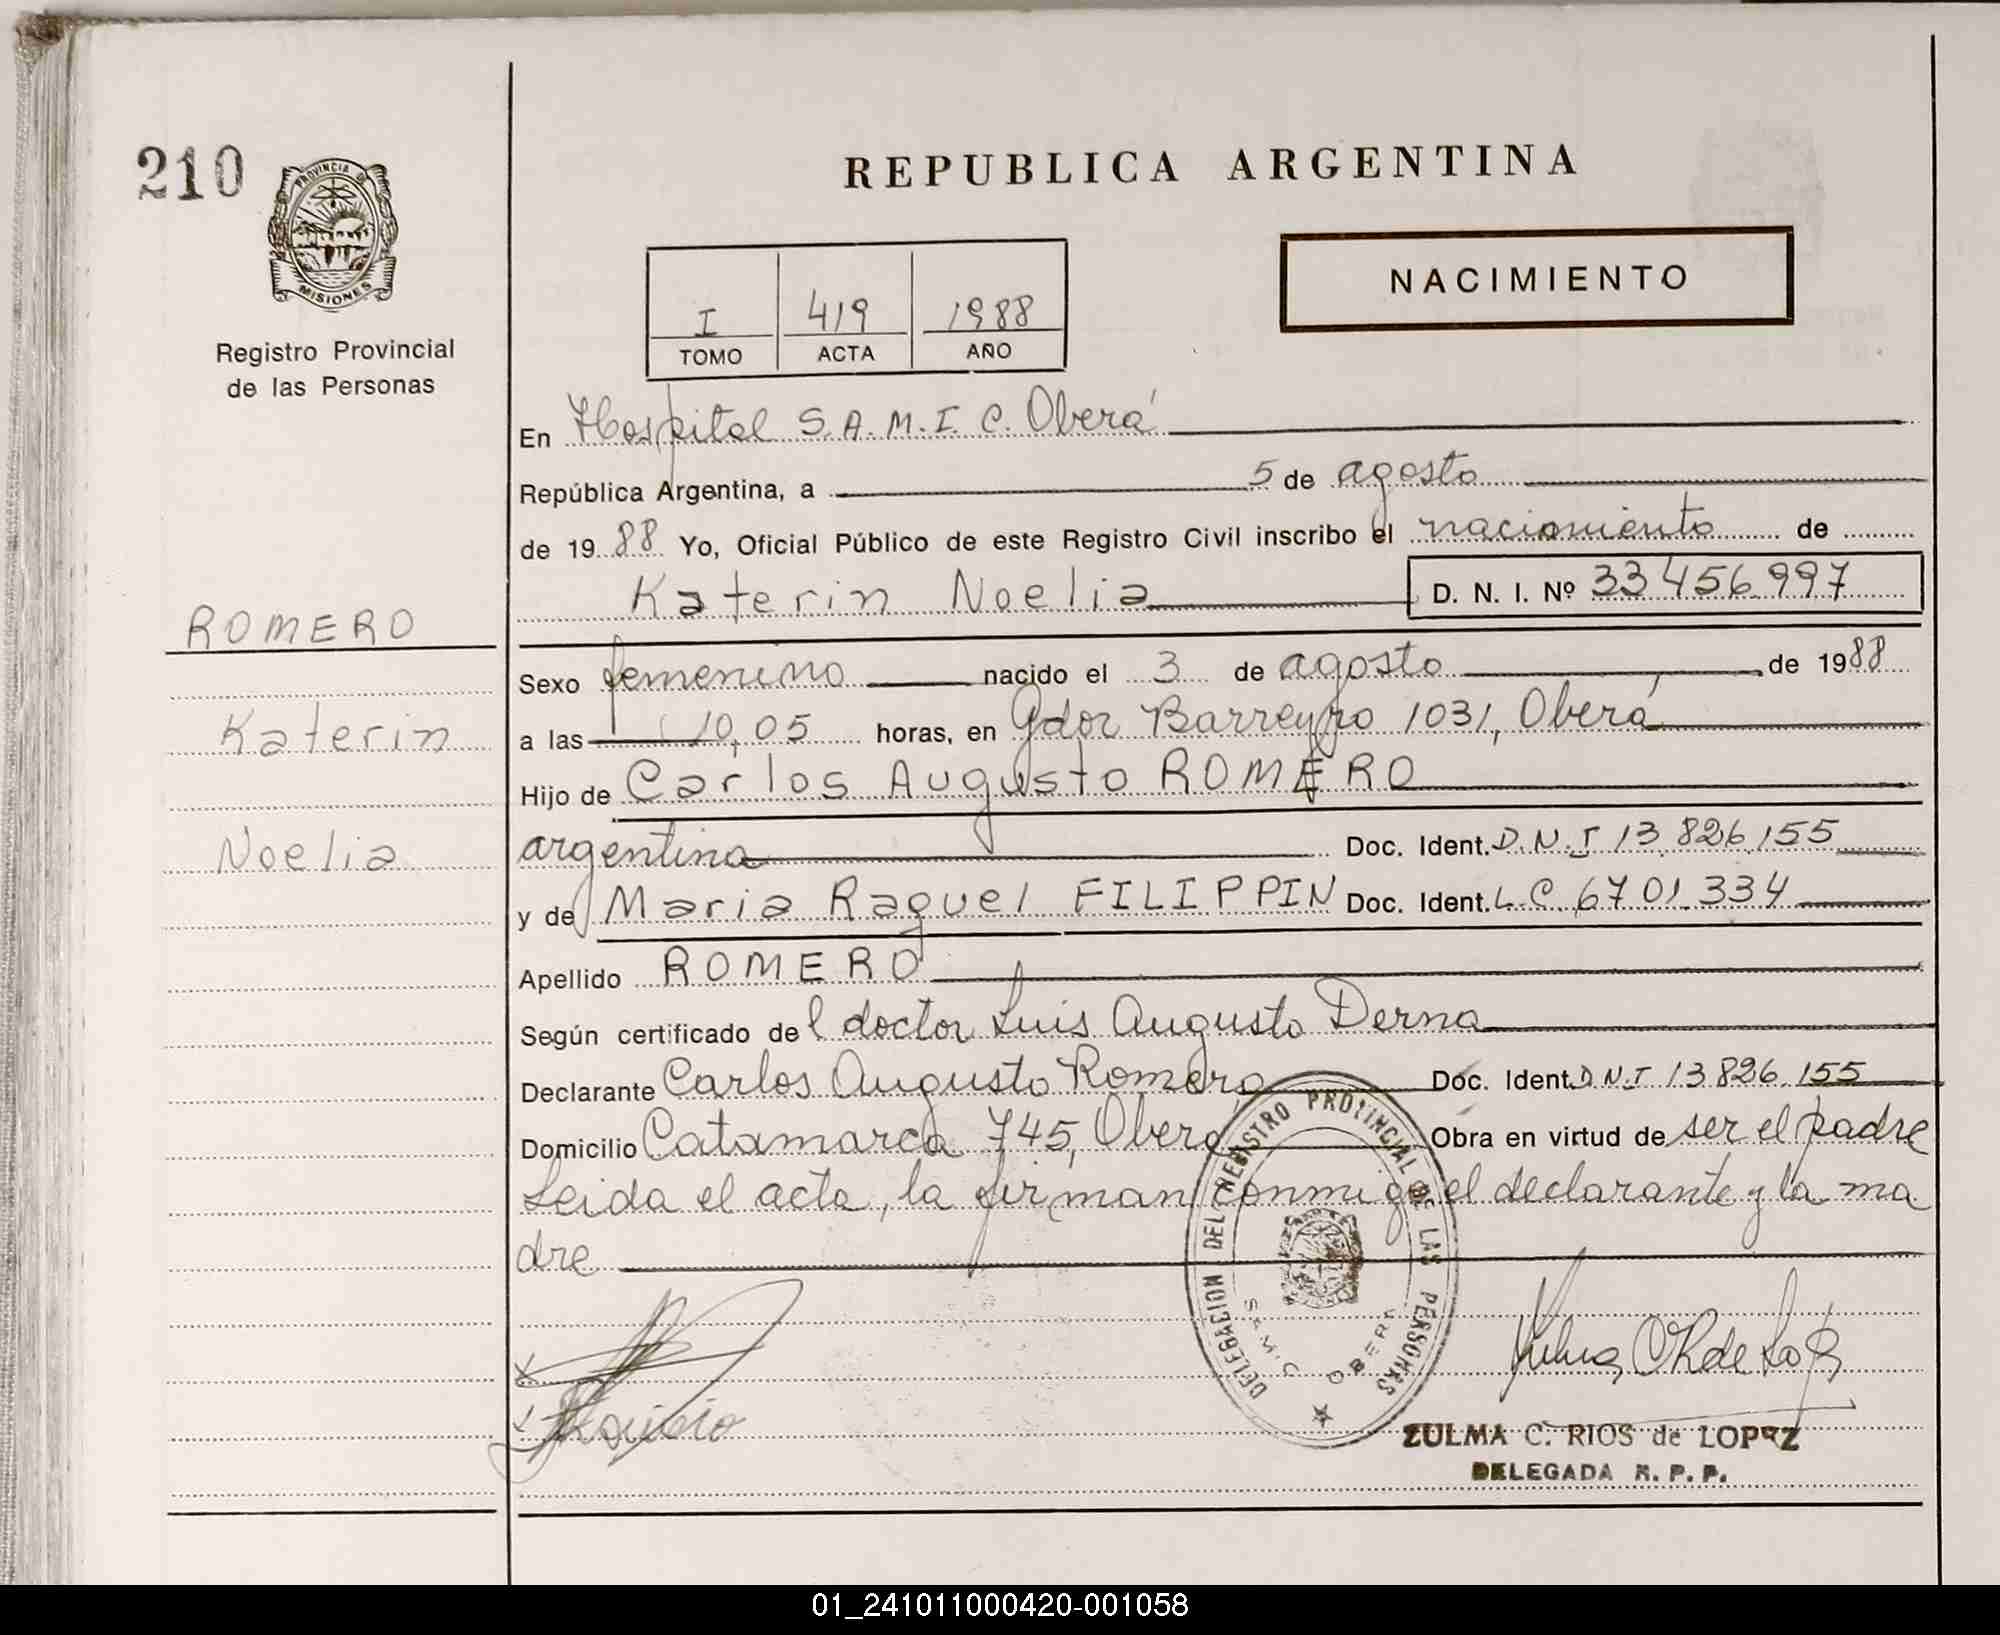 210
PROVINCIA DE
MISIONES
Registro Provincial
de las Personas
REPUBLICA ARGENTINA
NACIMIENTO
I 419 1988
TOMO ACTA AÑO
En Hospital S.A.M.I.C. Oberá
República Argentina, a 5 de agosto
de 1988 Yo, Oficial Público de este Registro Civil inscribo el nacimiento de
Katerin Noelia D. N. I. Nº 33456997
ROMERO
Katerin
Noelia
Sexo femenino nacido el 3 de agosto de 1988
a las 10,05 horas, en Gdor Barreyro 1031, Oberá
Hijo de Carlos Augusto ROMERO
argentina Doc. Ident. D.N.I 13.826.155
y de Maria Raquel FILIPPIN Doc. Ident. L.C 6701.334
Apellido ROMERO
Según certificado del doctor Luis Augusto Derna
Declarante Carlos Augusto Romero Doc. Ident. D.N.I 13826.155
Domicilio Catamarca 745, Oberá Obra en virtud de ser el padre
Leida el acta, la firman conmigo el declarante y la ma
dre
DELEGACION DEL REGISTRO PROVINCIAL DE LAS PERSONAS
S.A.M.I.C. OBERA
ZULMA C. RIOS de LOPEZ
DELEGADA R. P. P.
01_241011000420-001058